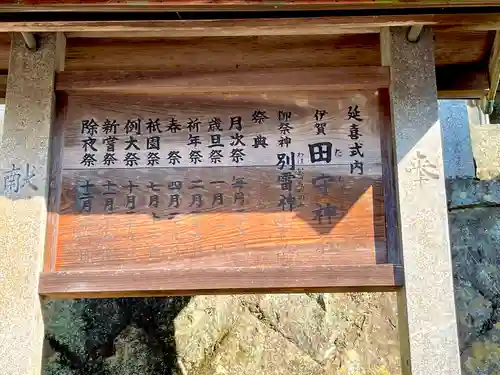 奉
延喜式内
伊賀 田守神
御祭神 別雷神
祭典
月次祭 毎月
歳旦祭 一月
祈年祭 二月
春祭 四月
祇園祭 七月
例大祭 十月
新嘗祭 十一月
除夜祭 十二月
献